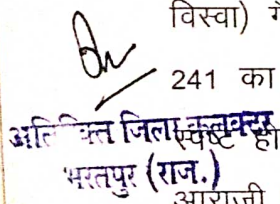 विस्वा)
241 का
अतिरिक्त जिला कलक्टर
स्पष्ट हो
भरतपुर (राज.)
आराजी